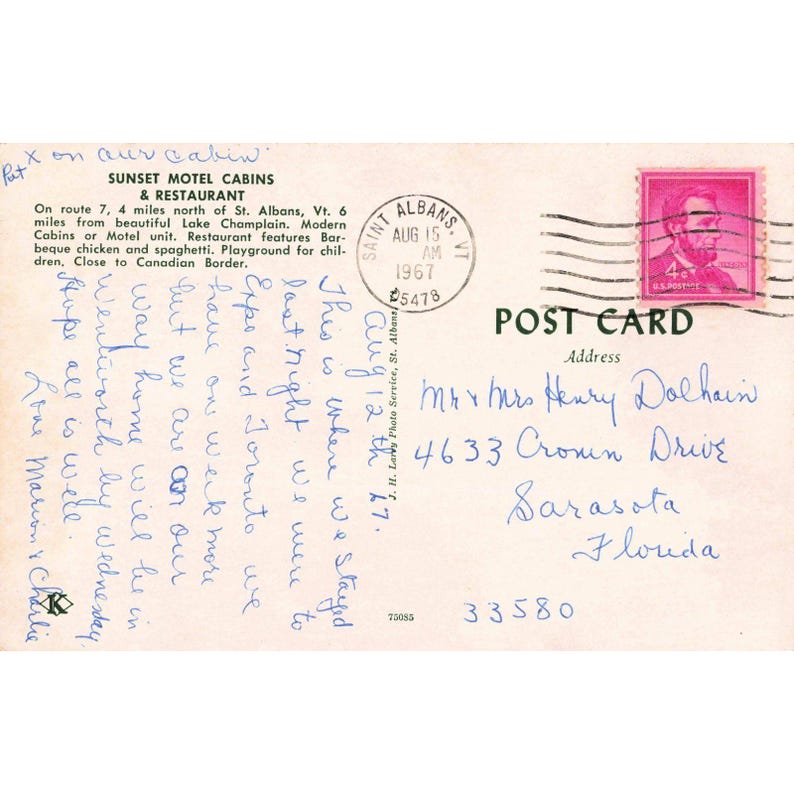 Put x on our cabin
SUNSET MOTEL CABINS
& RESTAURANT
On route 7, 4 miles north of St. Albans, Vt. 6
miles from beautiful Lake Champlain. Modern
Cabins or Motel unit. Restaurant features Bar-
beque chicken and spaghetti. Playground for chil-
dren. Close to Canadian Border.
Aug 12th 67.
This is where we stayed
last night we were to
Expo and Toronto we
have on week more
but we are on our
way home will be in
Wentworth by Wednesday.
Hope all is well.
Love Marion & Charlie
K
J. H. Larry Photo Service, St. Albans, Vt.
75085
SAINT ALBANS, VT
AUG 15
AM
1967
05478
4¢
LINCOLN
U.S. POSTAGE
POST CARD
Address
Mr & Mrs Henry Dolhain
4633 Cronin Drive
Sarasota
Florida
33580